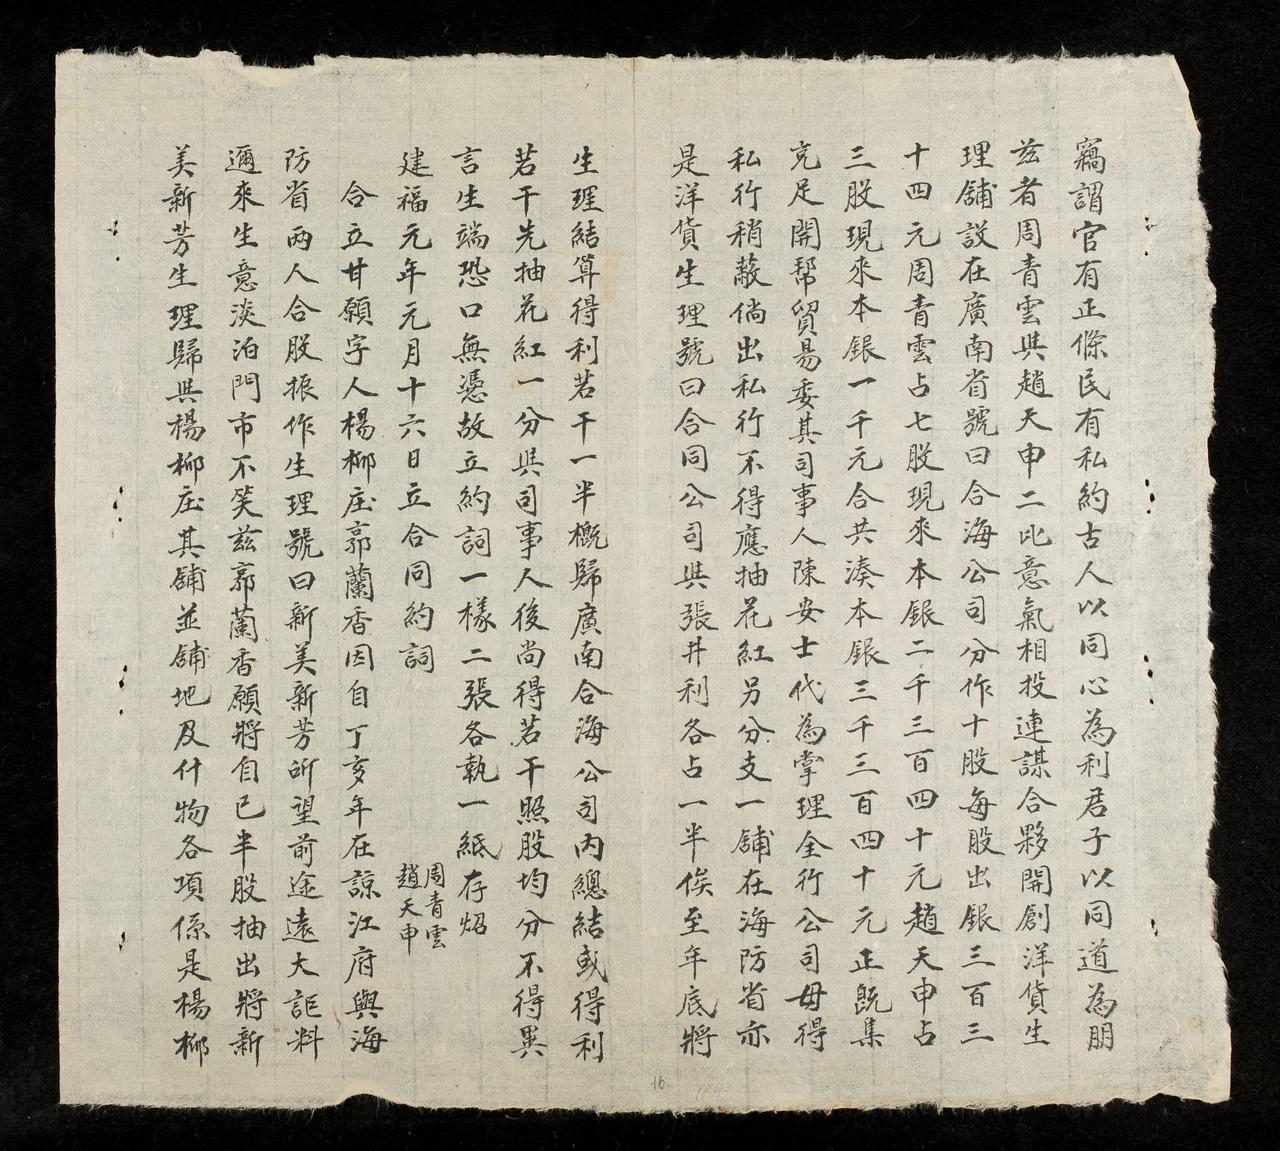 竊謂官有正條民有私約古人以同心為利君子以同道為朋
茲者周青雲與趙天申二比意氣相投連謀合夥開創洋貨生
理舖設在廣南省號曰合海公司分作十股每股出銀三百三
十四元周青雲占七股現來本銀二千三百四十元趙天申占
三股現來本銀一千元合共湊本銀三千三百四十元正既集
充足開幫貿易委其司事人陳安士代為掌理全行公司毋得
私行稍蔽倘出私行不得應抽花紅另分支一舖在海防省亦
是洋貨生理號曰合同公司與張井利各占一半俟至年底將
生理結算得利若干一半概歸廣南合海公司內總結或得利
若干先抽花紅一分與司事人後尚得若干照股均分不得異
言生端恐口無憑故立約詞一樣二張各執一紙存炤
建福元年元月十六日立合同約詞
周青雲
趙天申
合立甘願字人楊柳庄郭蘭香因自丁亥年在諒江府與海
防省兩人合股振作生理號曰新美新芳所望前途遠大詎料
邇來生意淡泊門市不笑茲郭蘭香願將自己半股抽出將新
美新芳生理歸與楊柳庄其舖並舖地及什物各項係是楊柳
16